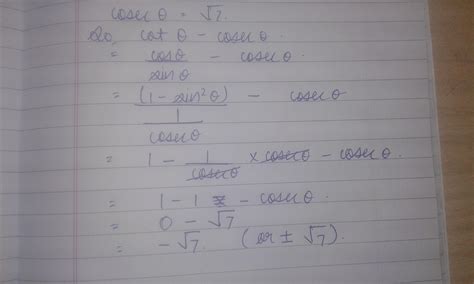 cosec θ = √7.
So, cot θ - cosec θ.
= cosθ/sinθ - cosec θ.
= (1 - sin²θ)/(1/cosecθ) - cosec θ
= 1 - 1/cosecθ × cosecθ - cosec θ.
= 1 - 1 - cosec θ.
= 0 - √7
= -√7. (or ± √7).